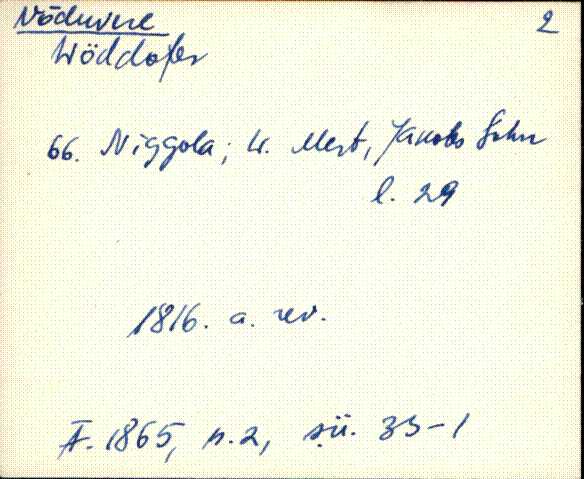 Võduvere 2
Wöddofer
66. Niggola; W. Mert, Jakobs Sohn
l. 29
1816. a. rev.
F. 1865, n. 2, sü. 35-1